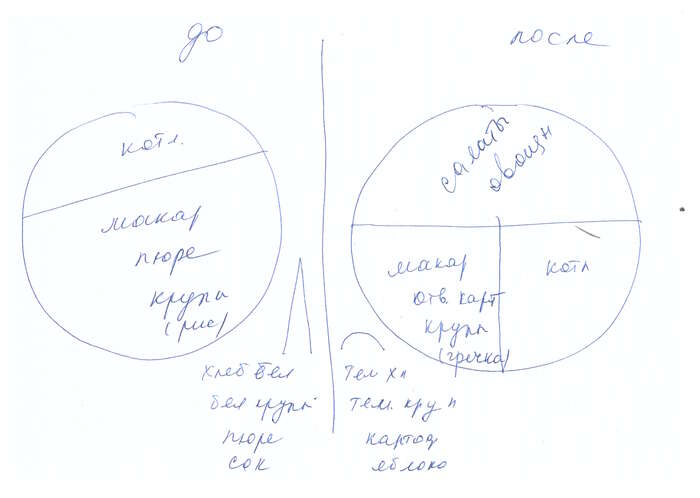 до
котл.
макар
пюре
крупы
(рис)
хлеб бел
бел крупы
пюре
сок
после
салаты
овощи
макар
отв. карт
крупы
(гречка)
котл
тем хл
тем. круп
картоф
яблоко